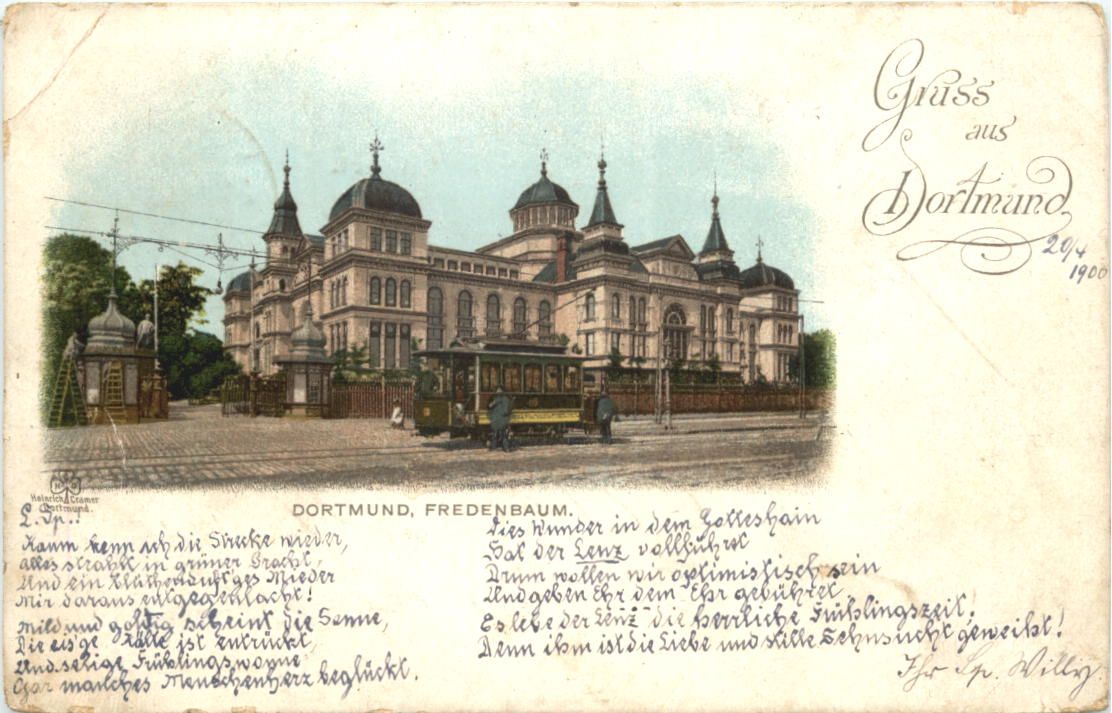 Gruss
aus
Dortmund.
20/4
1900
Heinrich Cramer
Dortmund.
DORTMUND, FREDENBAUM.
L. Sp.!
Kaum kenn ich die Strecke wieder,
alles strahlt in grüner Pracht,
Und ein blütenduft'ges Mieder
Mir daraus entgegenlacht!
Mild und goldig scheint die Sonne,
Die eis'ge Kälte ist entrückt,
Und selige Frühlingswonne
Gar manches Menschenherz beglückt.
Dies Wunder in dem Gotteshain
Hat der Lenz vollführet
Drum wollen wir optimistisch sein
Und geben Ehr dem Ehr gebühret
Es lebe der Lenz die herrliche Frühlingszeit,
Denn ihm ist die Liebe und stille Sehnsucht geweiht!
Ihr Sp. Willy.